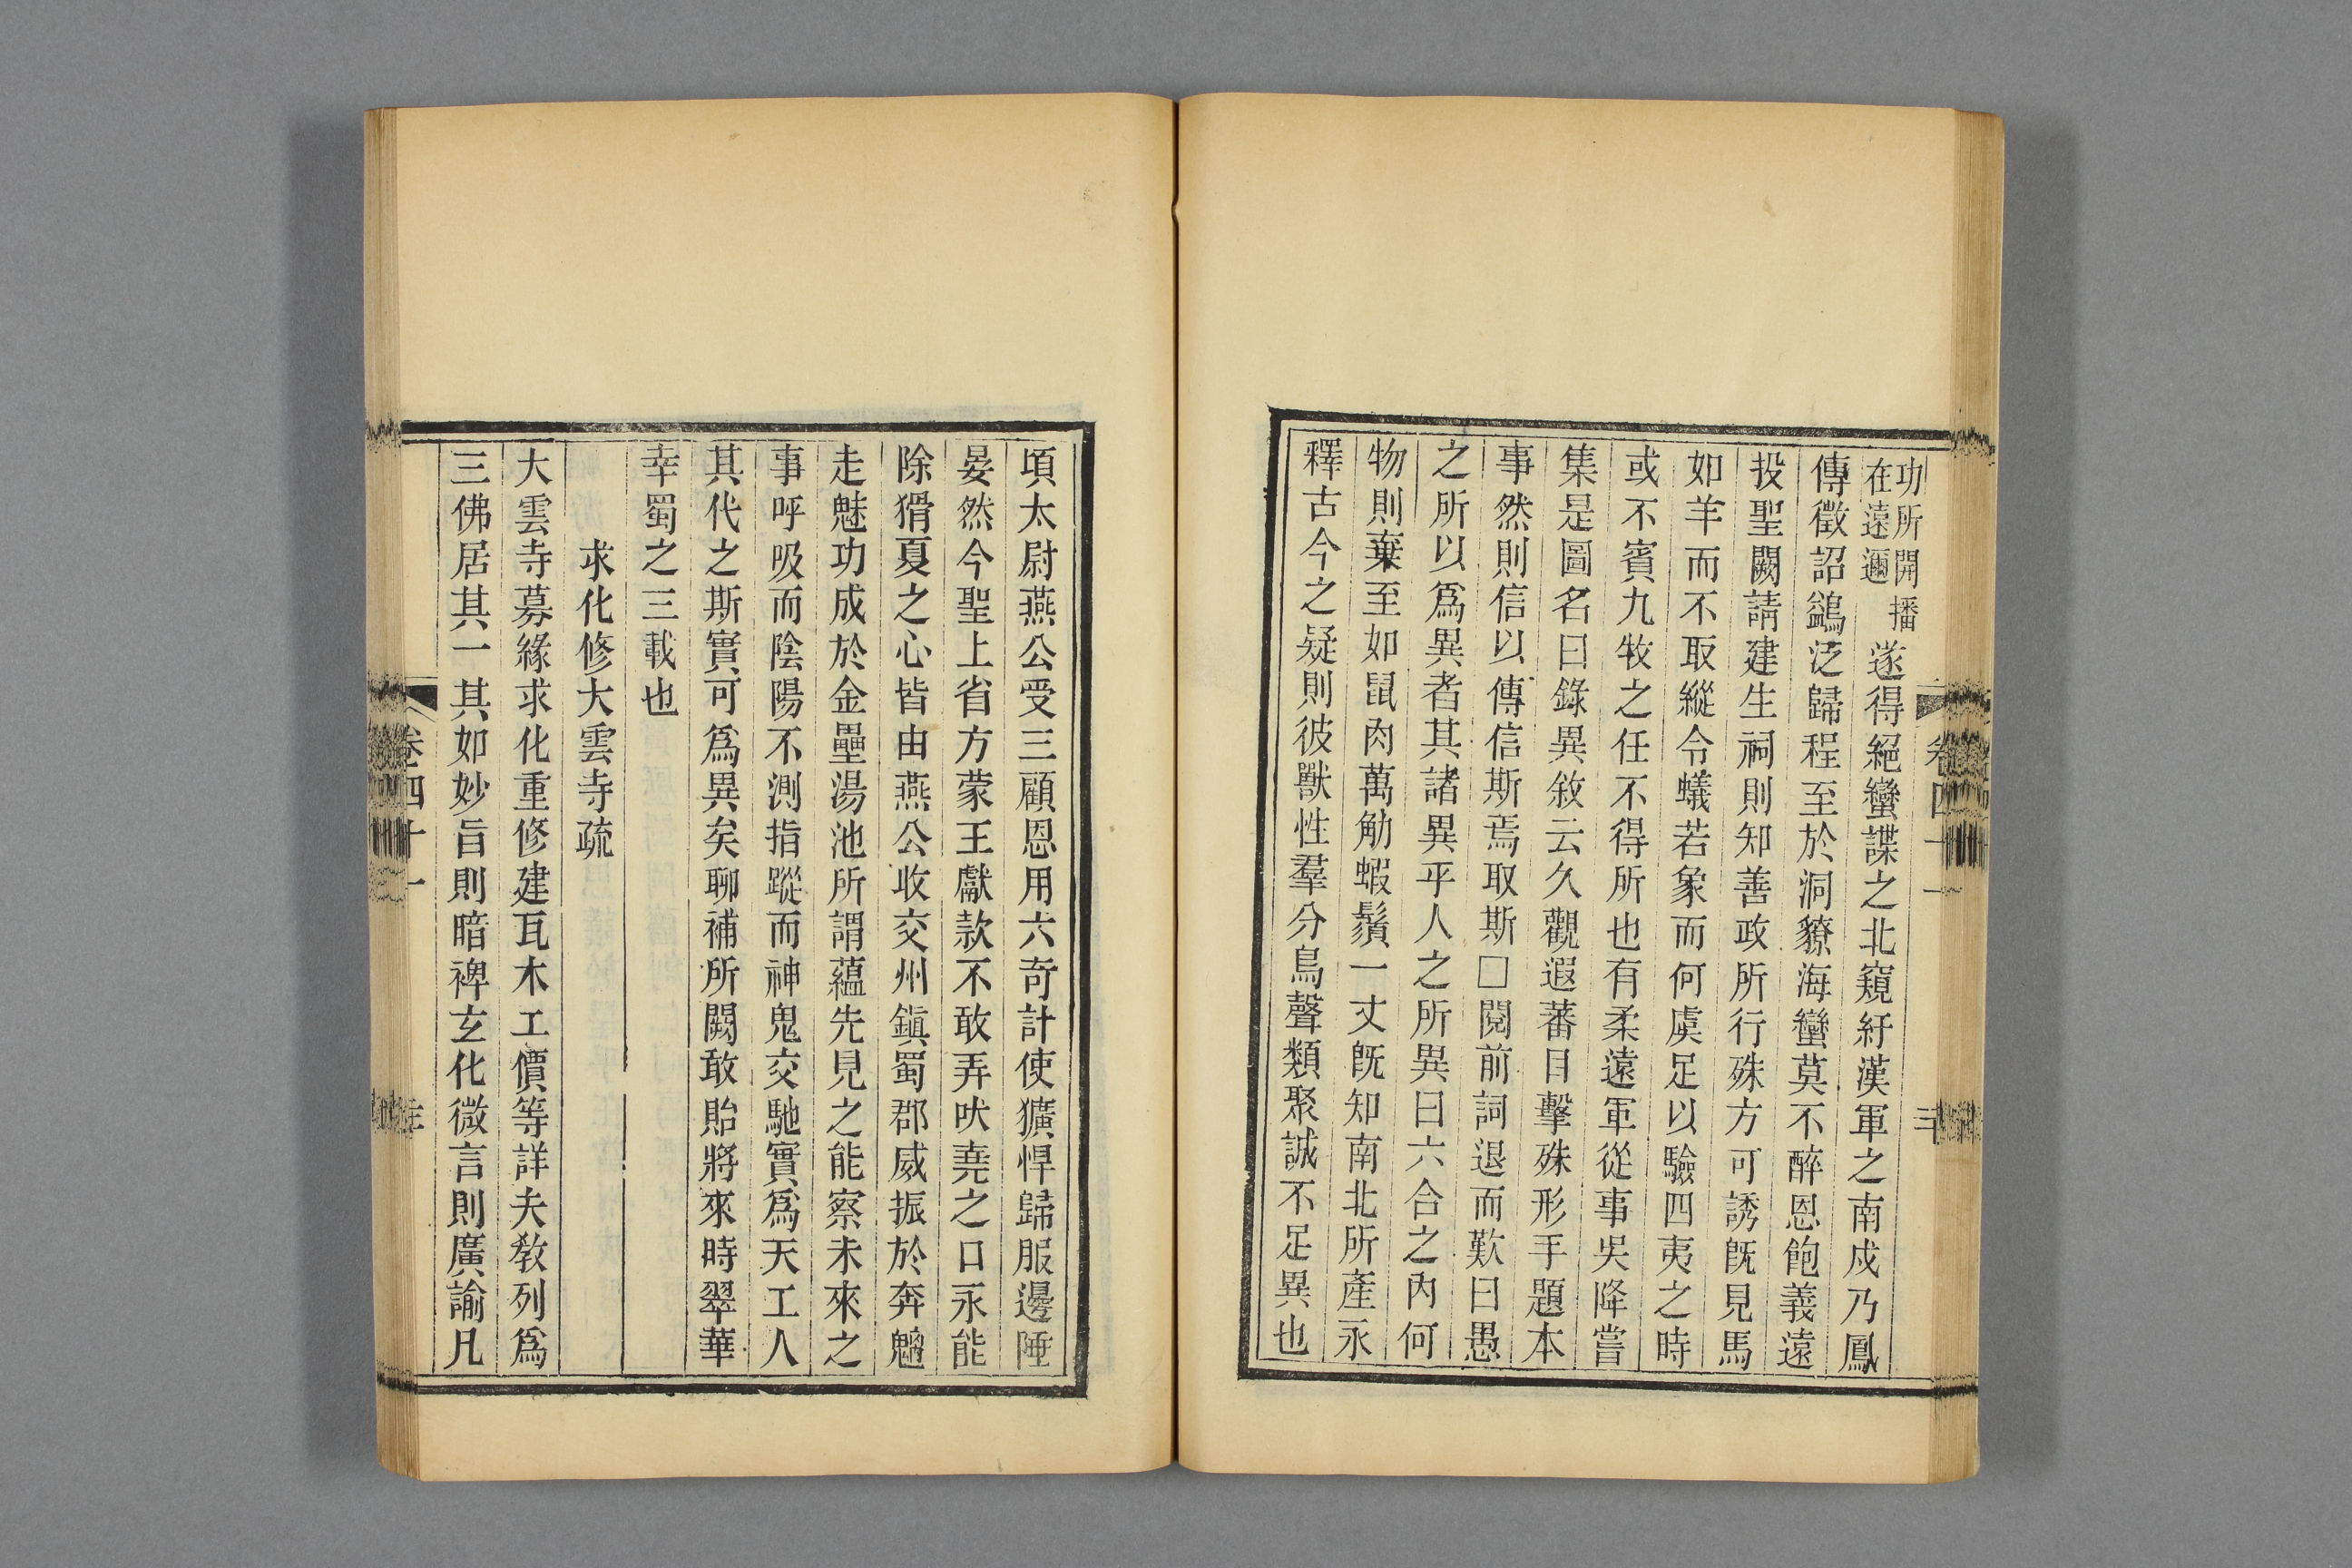 功所開播
在遠邇
遂得絕蠻諜之北窺紆漢軍之南戍乃鳳
傳徵詔鷁泛歸程至於洞獠海蠻莫不醉恩飽義遠
投聖闕請建生祠則知善政所行殊方可誘旣見馬
如羊而不取縱令蟻若象而何虞足以驗四夷之時
或不賓九牧之任不得所也有柔遠軍從事吳降嘗
集是圖名曰錄異敘云久觀遐蕃目擊殊形手題本
事然則信以傳信斯焉取斯□閱前詞退而歎曰愚
之所以爲異者其諸異乎人之所異曰六合之內何
物則棄至如鼠肉萬觔蝦鬚一丈旣知南北所產永
釋古今之疑則彼獸性羣分鳥聲類聚誠不足異也
卷四十一
三
頃太尉燕公受三顧恩用六奇計使獷悍歸服邊陲
晏然今聖上省方蒙王獻款不敢弄吠堯之口永能
除猾夏之心皆由燕公收交州鎭蜀郡威振於奔魑
走魅功成於金壘湯池所謂蘊先見之能察未來之
事呼吸而陰陽不測指蹤而神鬼交馳實爲天工人
其代之斯實可爲異矣聊補所闕敢貽將來時翠華
幸蜀之三載也
求化修大雲寺疏
大雲寺募緣求化重修建瓦木工價等詳夫敎列爲
三佛居其一其如妙旨則暗裨玄化微言則廣諭凡
卷四十一